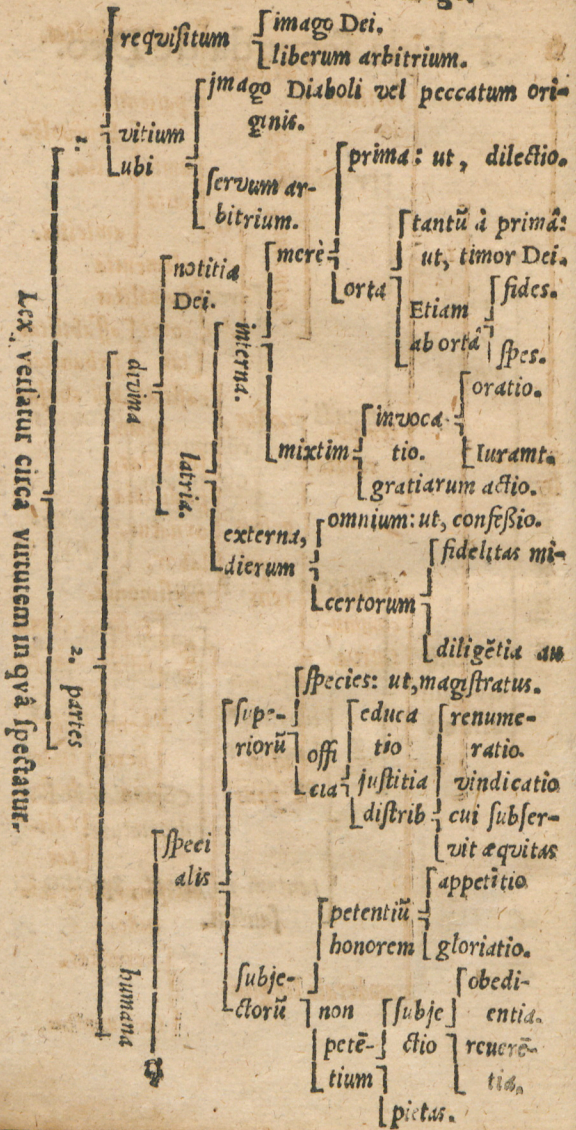 Lex versatur circa virtutem in qvâ spectatur.
1.
requisitum
imago Dei.
liberum arbitrium.
vitium
ubi
jmago Diaboli vel peccatum ori-
ginis.
servum ar-
bitrium.
2. partes
divina
notitia
Dei.
latria.
interna.
merè
prima: ut, dilectio.
orta
tantū à primâ:
ut, timor Dei.
Etiam
ab ortâ
fides.
spes.
mixtim
invoca-
tio.
oratio.
Iuramt.
gratiarum actio.
externa,
dierum
omnium: ut, confeßio.
certorum
fidelitas mi-
diligētia au
humana
speci
alis
supe-
riorū
species: ut, magistratus.
offi
cia
educa
tio
justitia
distrib
renume-
ratio.
vindicatio
cui subser-
vit æquitas
subje-
ctorū
petentiū
honorem
appetitio
gloriatio.
non
petē-
tium
subje
ctio
obedi-
entia.
reverē-
tia.
pietas.